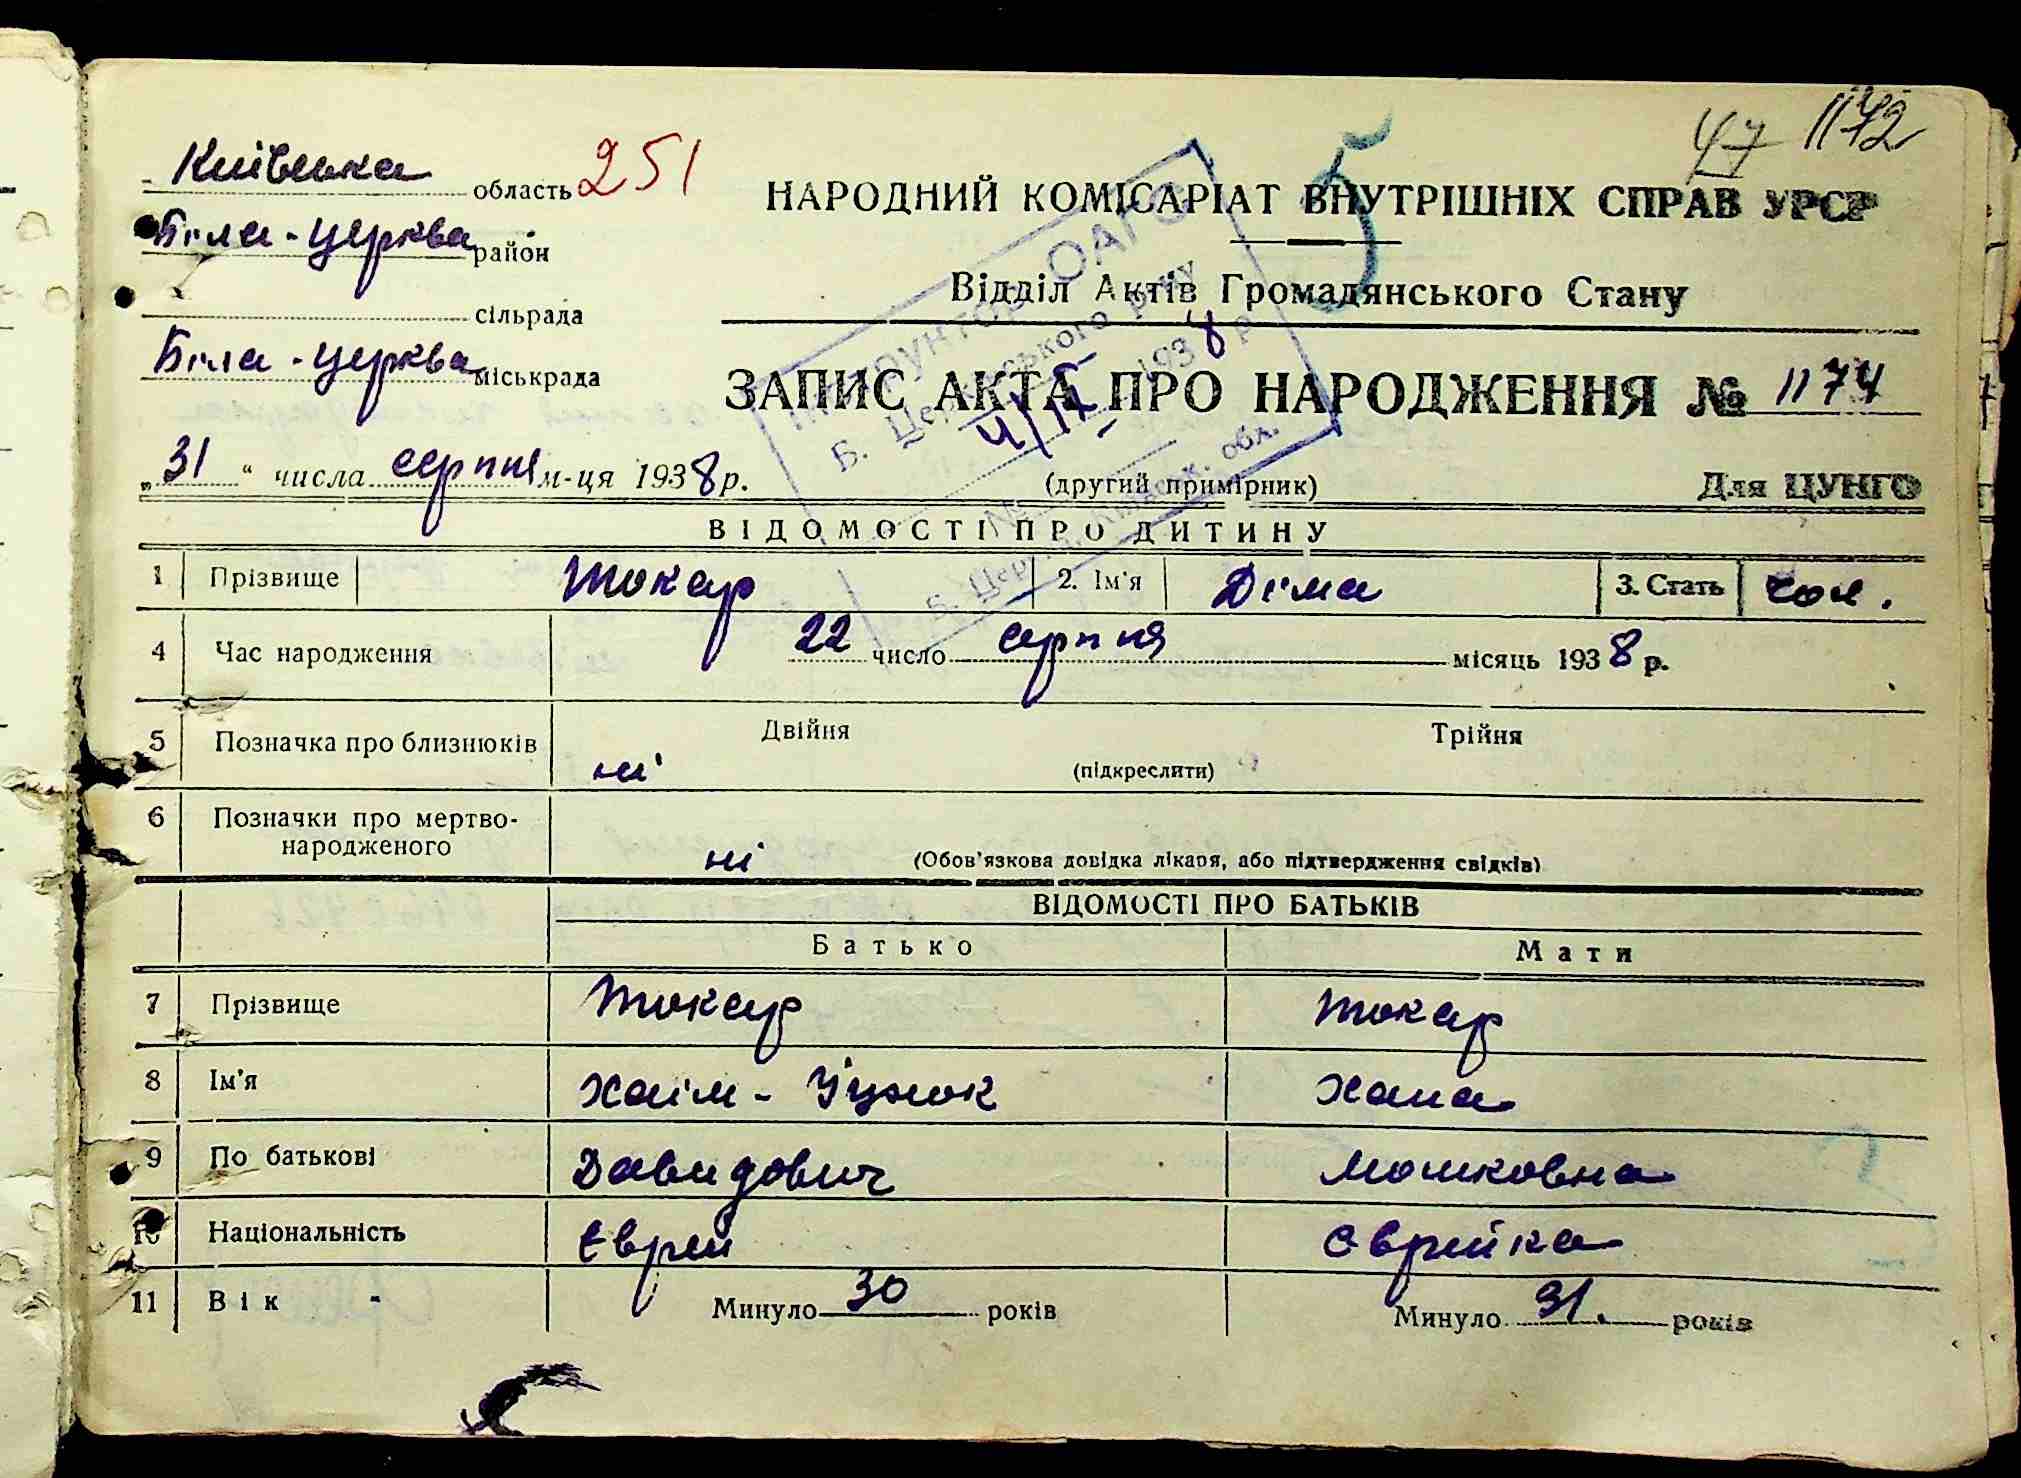 47 1172
Київська область 251
Біла-церква район
сільрада
Біла-церква міськрада
НАРОДНИЙ КОМІСАРІАТ ВНУТРІШНІХ СПРАВ УРСР
5
Відділ Актів Громадянського Стану
ЗАПИС АКТА ПРО НАРОДЖЕННЯ № 1174
„31“ числа серпня м-ця 1938 р.
(другий примірник)
Для ЦУНГО
ОАГС
Б. Церківського р-ну
4/ІХ 1938 р.
№
Б. Церква, Київськ. обл.
ВІДОМОСТІ ПРО ДИТИНУ
1 Прізвище Токар 2. Ім'я Діма 3. Стать чол.
4 Час народження 22 число серпня місяць 1938 р.
5 Позначка про близнюків ні Двійня Трійня
(підкреслити)
6 Позначки про мертво-
народженого ні (Обов'язкова довідка лікаря, або підтвердження свідків)
ВІДОМОСТІ ПРО БАТЬКІВ
Батько Мати
7 Прізвище Токар Токар
8 Ім'я Хаім-Іцхок Хана
9 По батькові Давидович Мошковна
10 Національність Єврей Єврейка
11 Вік - Минуло 30 років Минуло 31. років